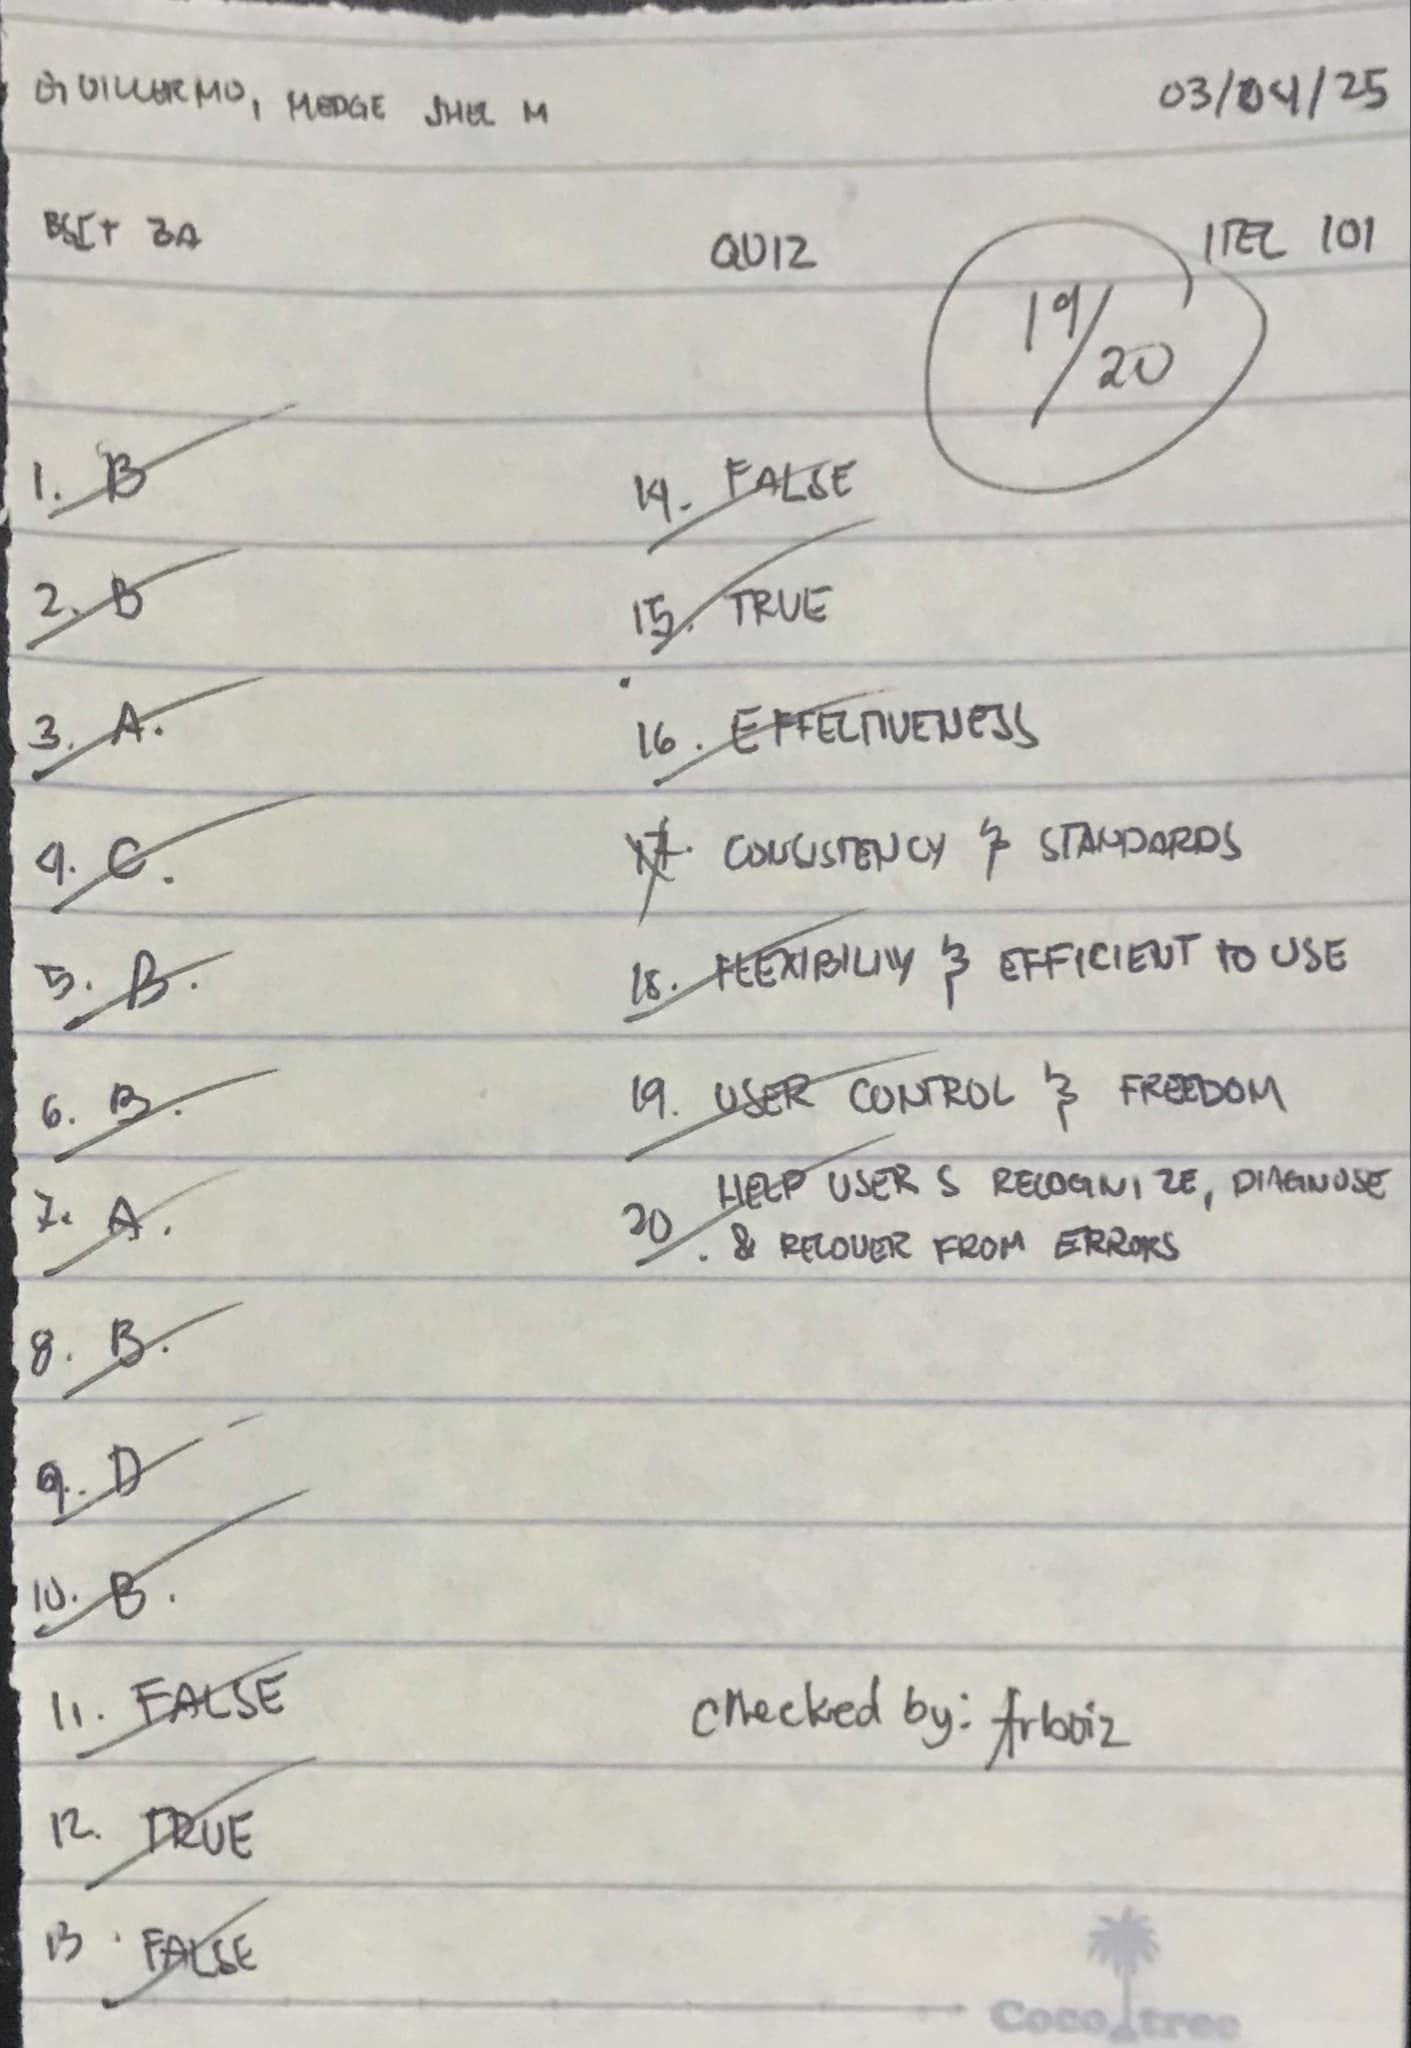 GUILLERMO, MEDGE SHEL M
03/04/25
BSIT 3A
QUIZ
ITEL 101
19/20
1. B
2. B
3. A.
4. C.
5. B.
6. B.
7. A.
8. B.
9. D
10. B.
11. FALSE
12. TRUE
13. FALSE
14. FALSE
15. TRUE
16. EFFECTIVENESS
17. CONSISTENCY & STANDARDS
18. FLEXIBILITY & EFFICIENT TO USE
19. USER CONTROL & FREEDOM
20. HELP USERS RECOGNIZE, DIAGNOSE
& RECOVER FROM ERRORS
Checked by: Arboiz
Cocotree